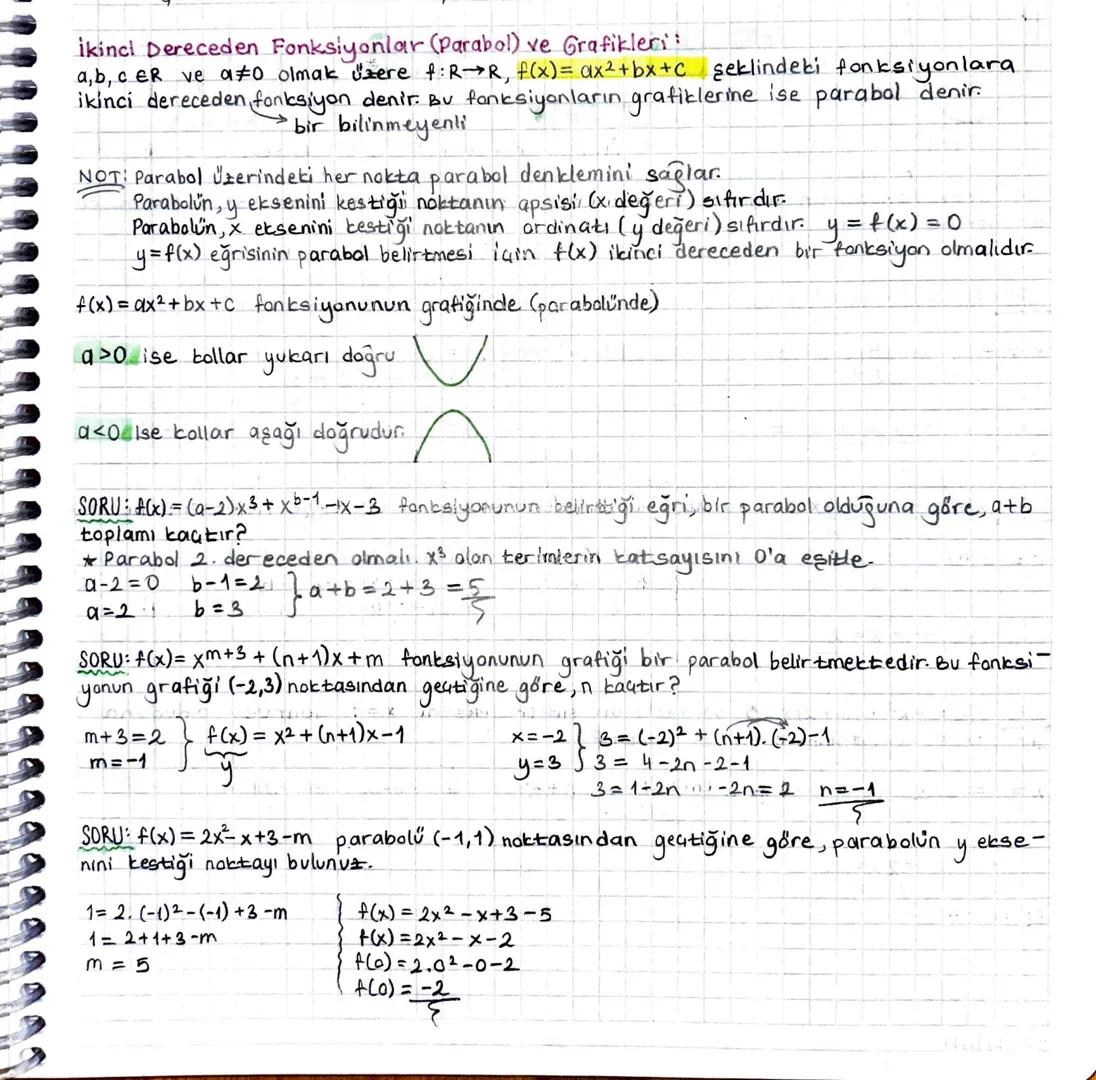 İkinci Dereceden Fonksiyonlar (Parabol) ve Grafikleri:
a,b,c ∈R ve a≠0 olmak üzere f:R→R, f(x)= ax²+bx+c şeklindeki fonksiyonlara
ikinci dereceden fonksiyon denir. Bu fonksiyonların grafiklerine ise parabol denir.
→ bir bilinmeyenli
NOT: Parabol üzerindeki her nokta parabol denklemini sağlar.
Parabolün, y eksenini kestiği noktanın apsisi (x değeri) sıfırdır.
Parabolün, x eksenini kestiği noktanın ordinatı (y değeri) sıfırdır. y = f(x) = 0
y=f(x) eğrisinin parabol belirtmesi için f(x) ikinci dereceden bir fonksiyon olmalıdır.
f(x) = ax²+bx+c fonksiyonunun grafiğinde (parabolünde)
a>0 ise kollar yukarı doğru
a<0 ise kollar aşağı doğrudur.
SORU: f(x) = (a-2)x³+ x^(b-1) -1x-3 fonksiyonunun belirttiği eğri, bir parabol olduğuna göre, a+b
toplamı kaçtır?
* Parabol 2. dereceden olmalı. x³ olan terimlerin katsayısını 0'a eşitle.
a-2=0 b-1=2 } a+b=2+3 =5
a=2 b=3
SORU: f(x)= x^(m+3) + (n+1)x+m fonksiyonunun grafiği bir parabol belirtmektedir. Bu fonksi-
yonun grafiği (-2,3) noktasından geçtiğine göre, n kaçtır?
m+3=2 } f(x) = x²+(n+1)x-1 x=-2 } 3=(-2)² + (n+1).(-2)-1
m=-1 y y=3 3 = 4-2n-2-1
3=1-2n -2n=2 n=-1
SORU: f(x) = 2x²-x+3-m parabolü (-1,1) noktasından geçtiğine göre, parabolün y ekse-
nini kestiği noktayı bulunuz.
1= 2.(-1)²-(-1)+3-m f(x) = 2x²-x+3-5
1= 2+1+3-m f(x) =2x²-x-2
m = 5 f(0) =2.0²-0-2
f(0) = -2